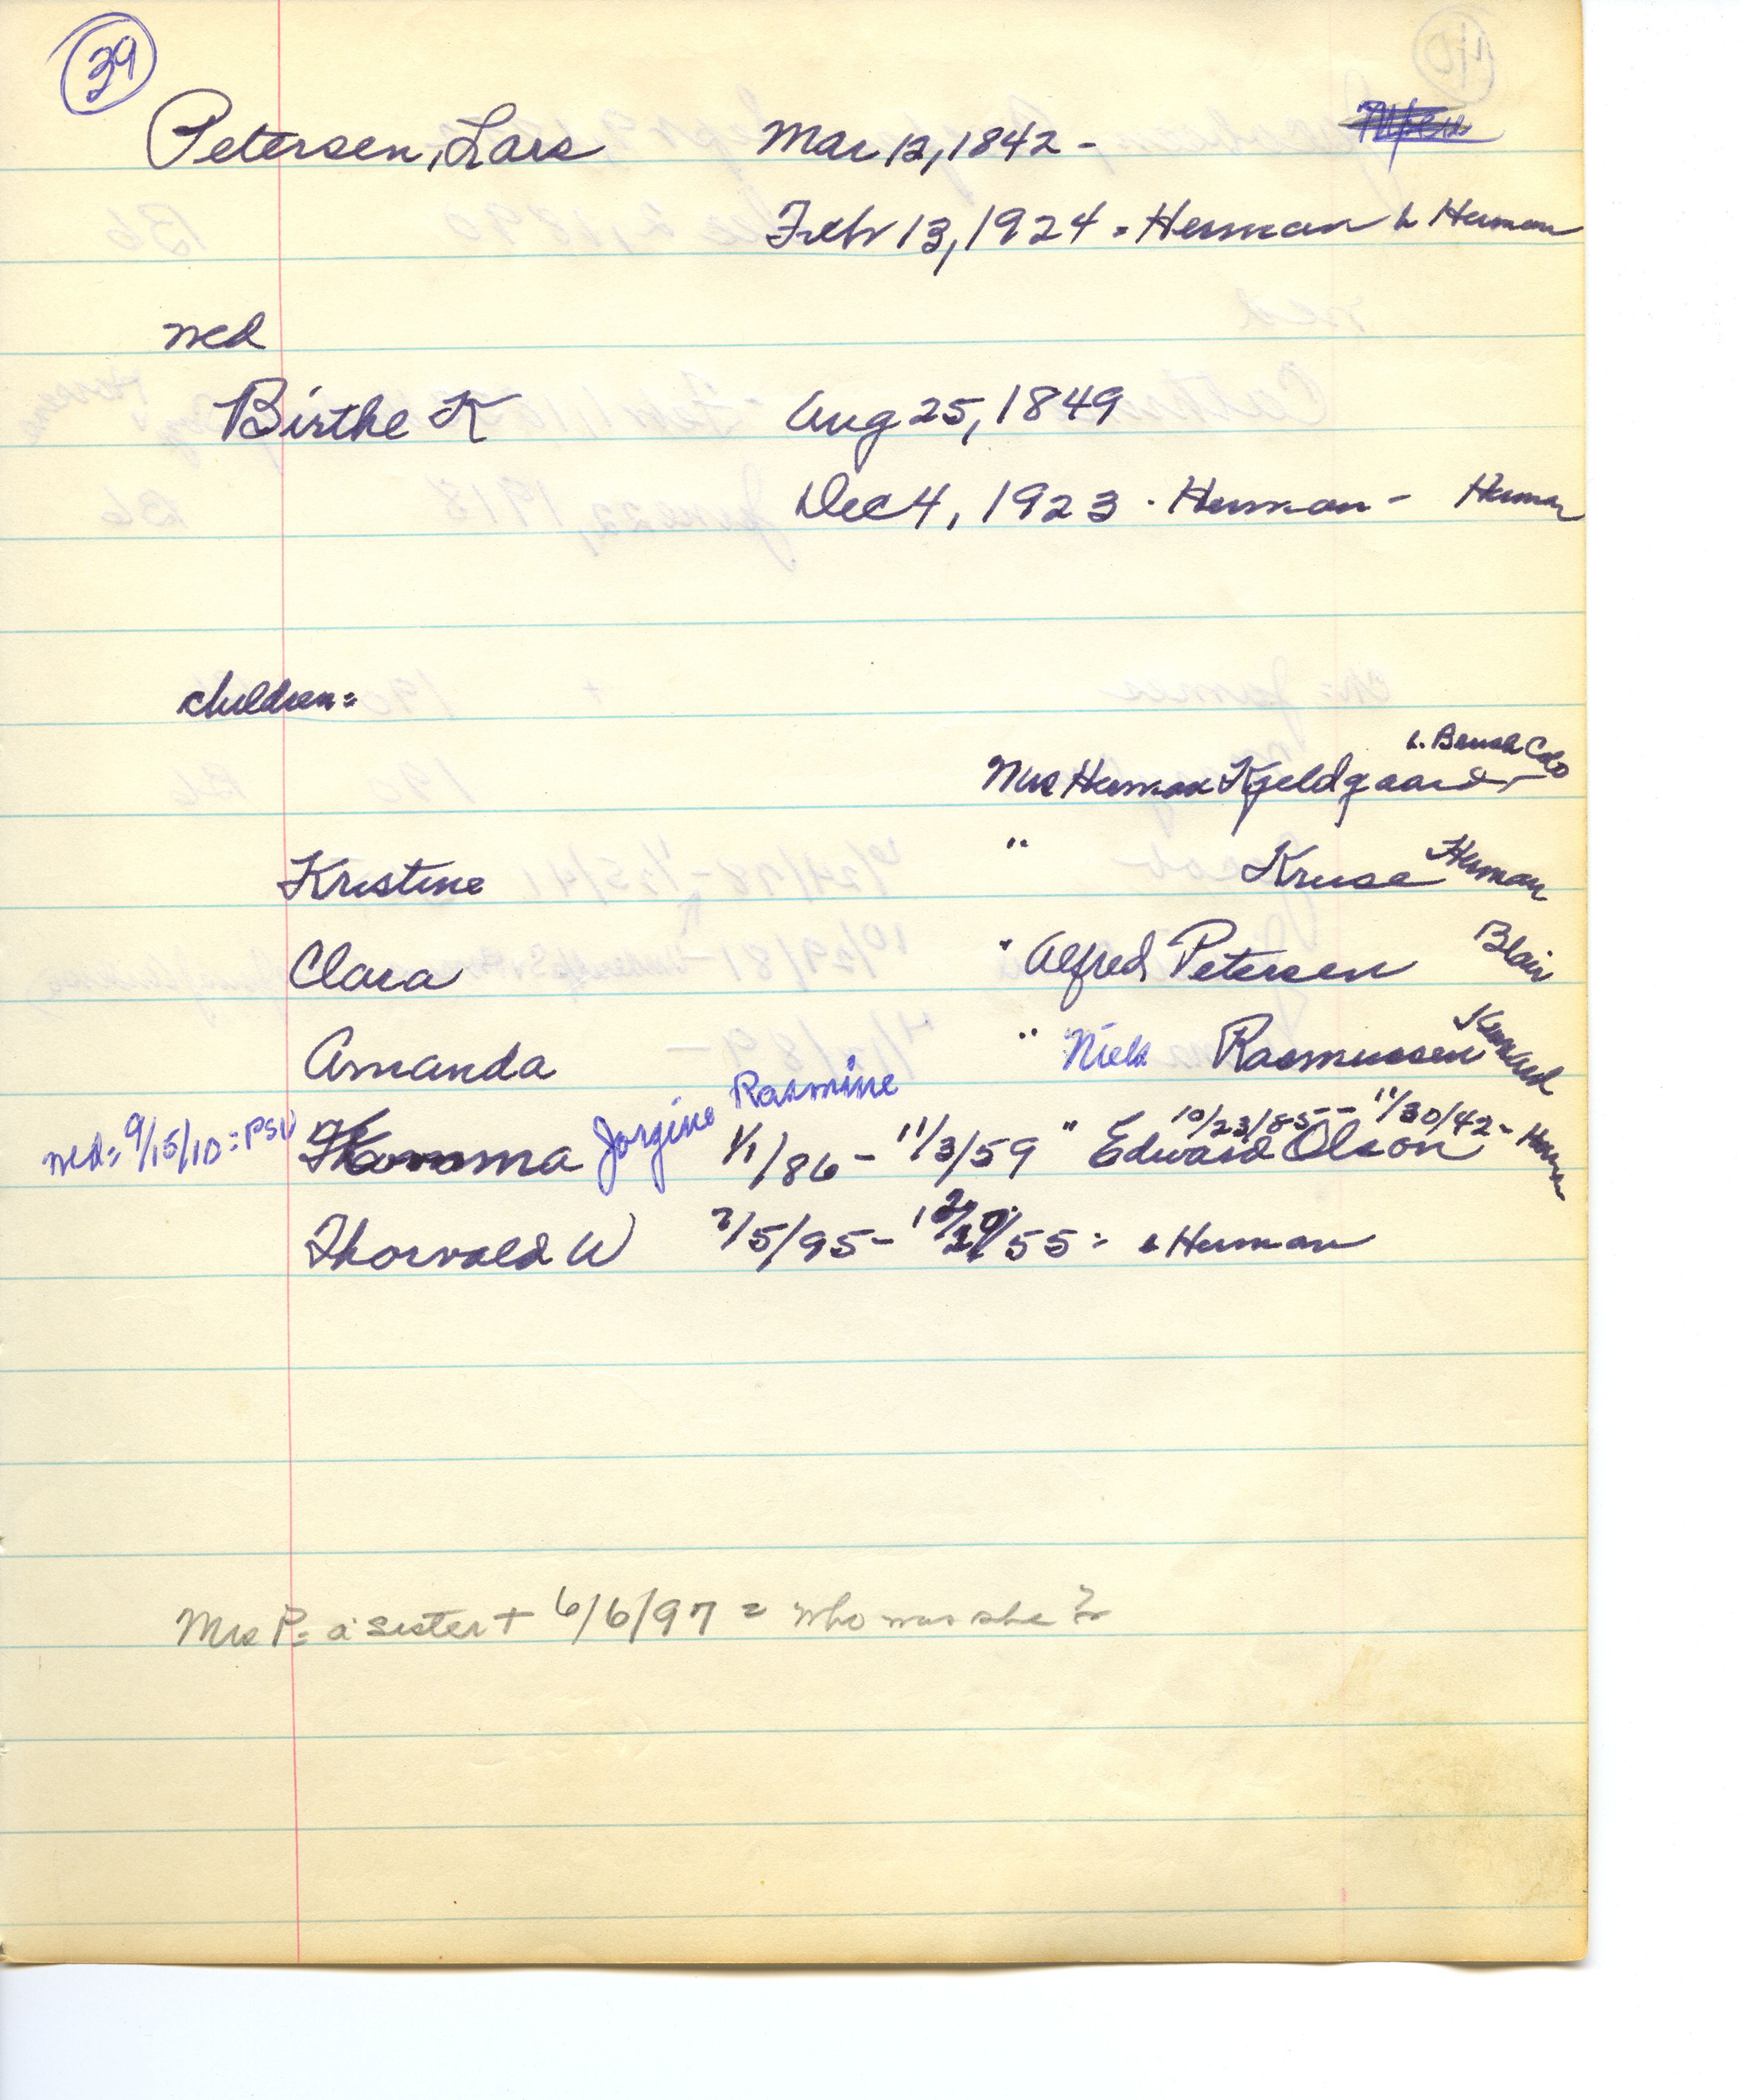 39
Petersen, Lars Mar 12, 1842 -
Feb 13, 1924 = Herman b Herman
md
Birthe K Aug 25, 1849
Dec 4, 1923 - Herman - Herman
children =
Mrs Herman Kjeldgaard - Colo
Kristine " Kruse Herman
Clara " Alfred Petersen Blair
Amanda " Niels Rasmussen Kennard
md = 9/15/10 = PSW Jorgine Rasmine 1/1/86 - 11/3/59 " Edward Olson 10/23/85 - 11/30/42 - Herman
Thorvald W 7/5/95 - /55 = b Herman
Mrs P = a sister + 6/6/97 = who was she?